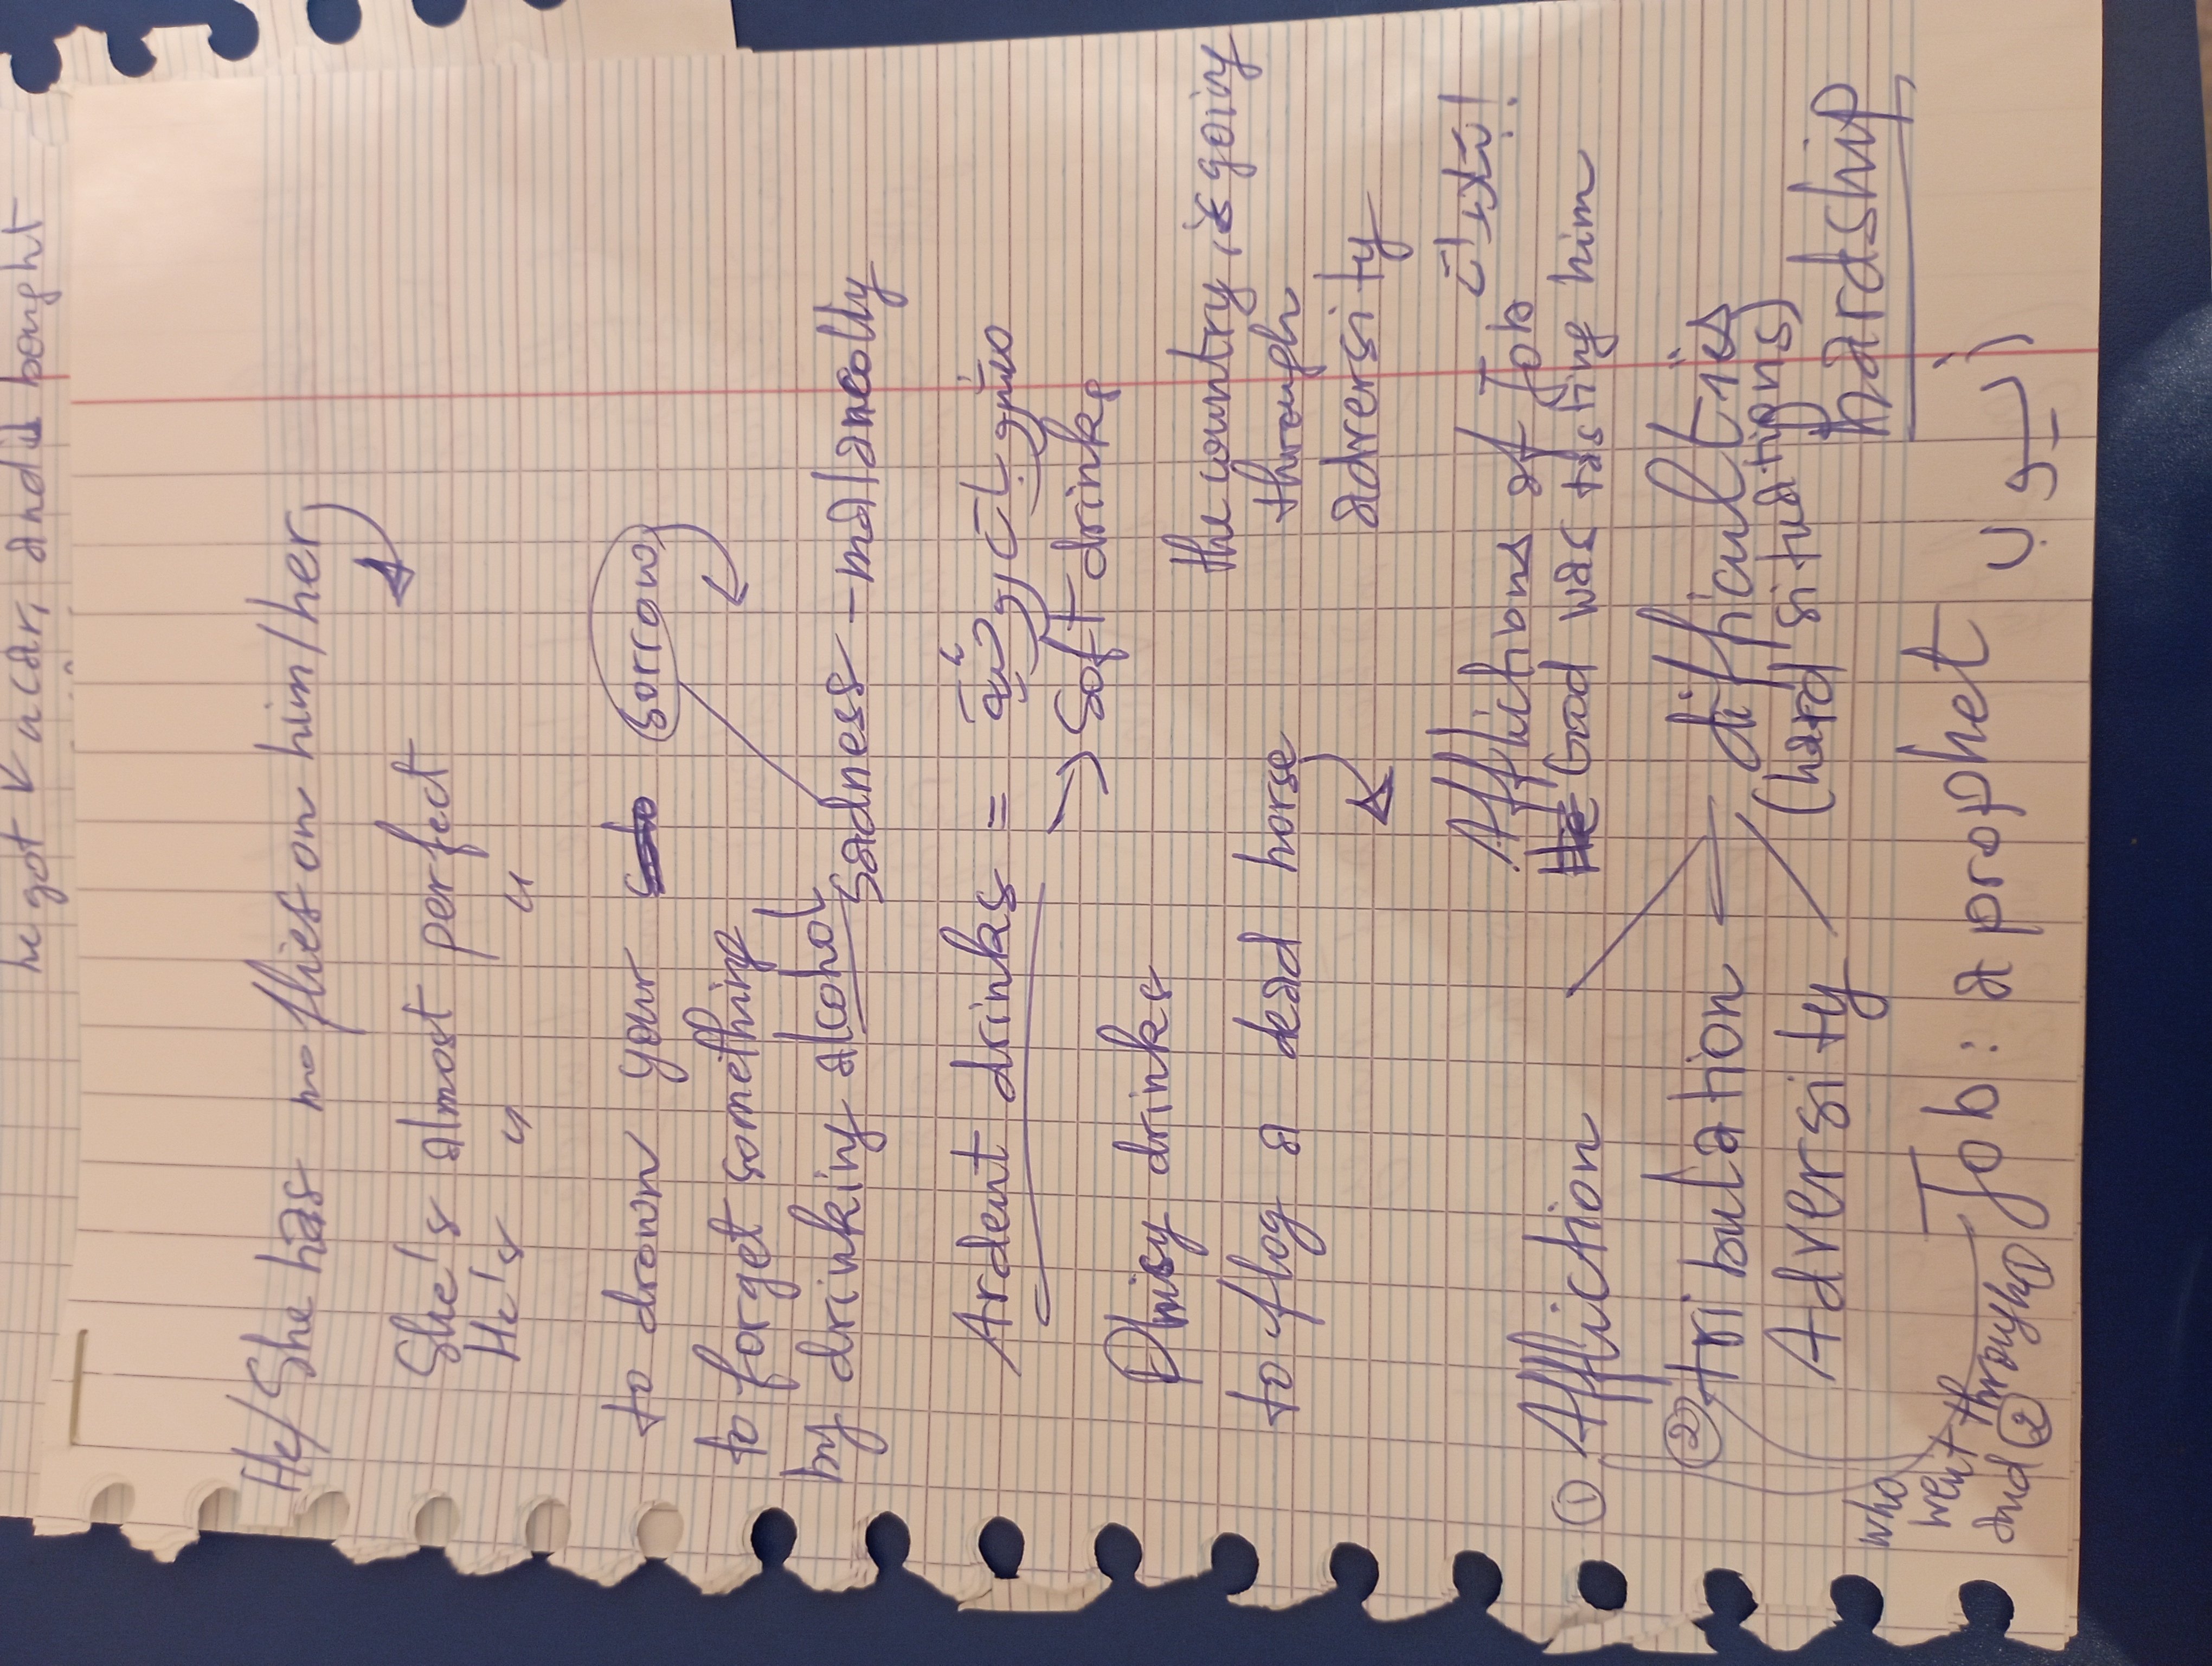 he got a car, and I bought
He/She has no flies on him/her
She's almost perfect
He's " "
to drown your sorrow
to forget something
by drinking alcohol
sadness - malancolly
Ardent drinks = مشروبات روحيّة
→ Soft drinks
drinks
the country is going
through
adversity
to flog a dead horse
Afflictions of Job ابتلاءات
God was tasting him
① Affliction
② tribulation
difficulties
(hard situations)
Adversity
hardship
who
went through ①
and ②
Job : a prophet أيوب